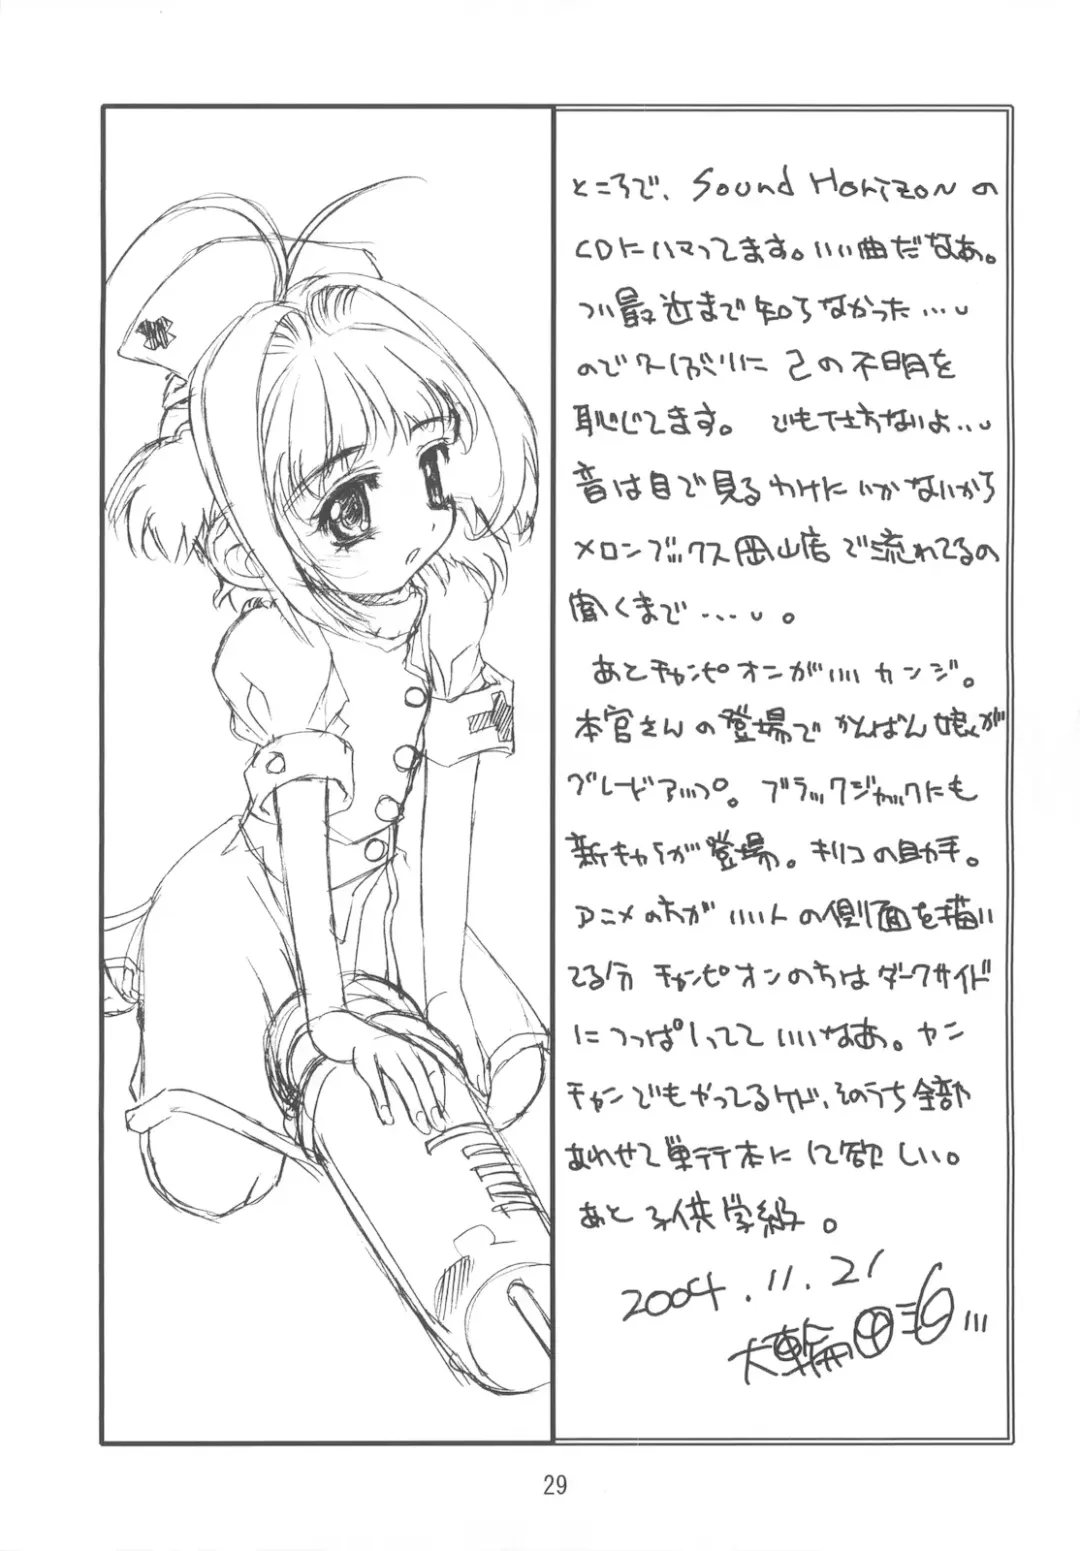 ところで、Sound Horizonの
CDにハマってます。いい曲だなあ。
つい最近まで知らなかった…
のでスーパー
己の不明を
恥じてます。でも仕方ないよ…
音は目で見るわけにいかないから
メロンブックス岡山店で流れてるの
聞くまで…。
あとチャンピオンがいいカンジ。
本官さんの登場でかんばん娘が
グレードアップ。ブラックジャックにも
新キャラが登場。キリコの助手。
アニメの方がいい人の側面を描い
てる分チャンピオンの方はダークサイド
につっぱしってていいなあ。ヤン
チャンでもやってるケド、そのうち全部
あわせて単行本にして欲しい。
あと子供学級。
2004.11.21
大輪田
29